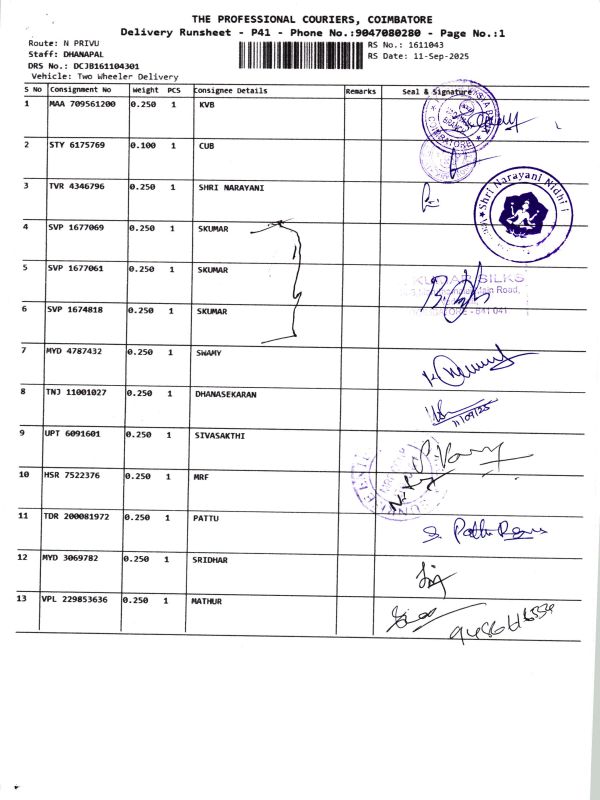 THE PROFESSIONAL COURIERS, COIMBATORE
Delivery Runsheet - P41 - Phone No.:9047080280 - Page No.:1
Route: N PRIVU
RS No.: 1611043
Staff: DHANAPAL
RS Date: 11-Sep-2025
DRS No.: DCJB161104301
Vehicle: Two Wheeler Delivery
S No Consignment No Weight PCS Consignee Details Remarks Seal & Signature
1 MAA 709561200 0.250 1 KVB
COIMBATORE
2 STY 6175769 0.100 1 CUB
3 TVR 4346796 0.250 1 SHRI NARAYANI
Shri Narayani Nidhi
4 SVP 1677069 0.250 1 SKUMAR
5 SVP 1677061 0.250 1 SKUMAR
KUMAR SILKS
Main Road,
641 041
6 SVP 1674818 0.250 1 SKUMAR
7 MYD 4787432 0.250 1 SWAMY
8 TNJ 11001027 0.250 1 DHANASEKARAN
11/09/25
9 UPT 6091601 0.250 1 SIVASAKTHI
10 HSR 7522376 0.250 1 MRF
11 TDR 200081972 0.250 1 PATTU
12 MYD 3069782 0.250 1 SRIDHAR
13 VPL 229853636 0.250 1 MATHUR